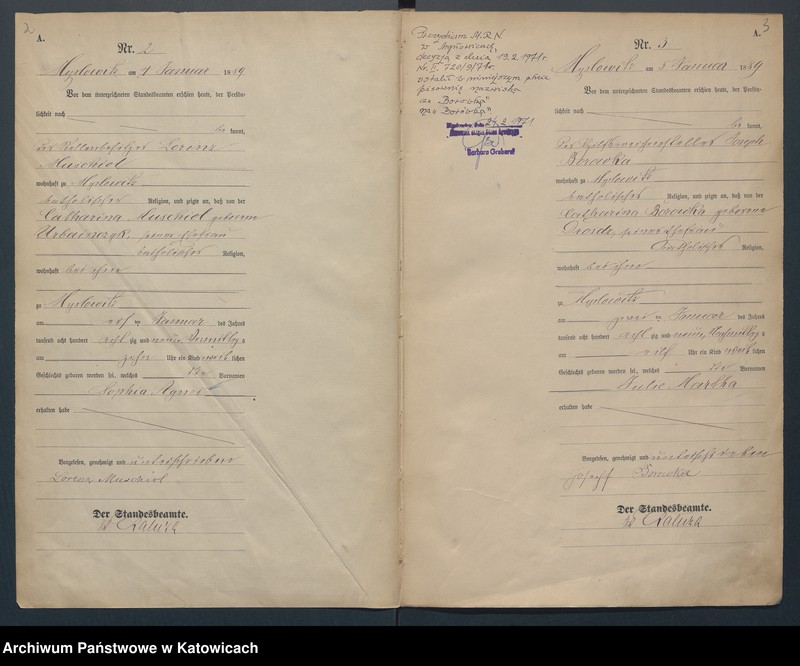 2
A.
Nr. 2
Myslowitz am 4 Januar 1889
Vor dem unterzeichneten Standesbeamten erschien heute, der Persön-
lichkeit nach
be kannt,
der Lorenz
Muschiol
wohnhaft zu Myslowitz
katholischer Religion, und zeigte an, daß von der
Catharina Muschiol geborene
Urbainczyk, seiner Ehefrau
katholischer Religion,
wohnhaft bei ihm
zu Myslowitz
am Januar des Jahres
tausend acht hundert acht zig und neun Vormittags
um zehn Uhr ein Kind weib lichen
Geschlechts geboren worden sei, welches die Vornamen
Sophia Agnes
erhalten habe
Vorgelesen, genehmigt und unterschrieben
Lorenz Muschiol
Der Standesbeamte.
Kaluza
3
A.
Prezydium M.R.N.
w Mysłowicach,
decyzją z dnia 13.2.1971r.
ustalił w niniejszym akcie
pisownię nazwiska
na "Borówka"
24.2.1971
Barbara Grabarek
Nr. 3
Myslowitz am 5 Januar 1889
Vor dem unterzeichneten Standesbeamten erschien heute, der Persön-
lichkeit nach
be kannt,
der Joseph
Borowka
wohnhaft zu Myslowitz
katholischer Religion, und zeigte an, daß von der
Catharina Borowka geborene
seiner Ehefrau
katholischer Religion,
wohnhaft bei ihm
zu Myslowitz
am zwei Januar des Jahres
tausend acht hundert acht zig und neun
um Uhr ein Kind weib lichen
Geschlechts geboren worden sei, welches die Vornamen
Julie Martha
erhalten habe
Vorgelesen, genehmigt und unterschrieben
Joseff Borowka
Der Standesbeamte.
Kaluza
Archiwum Państwowe w Katowicach